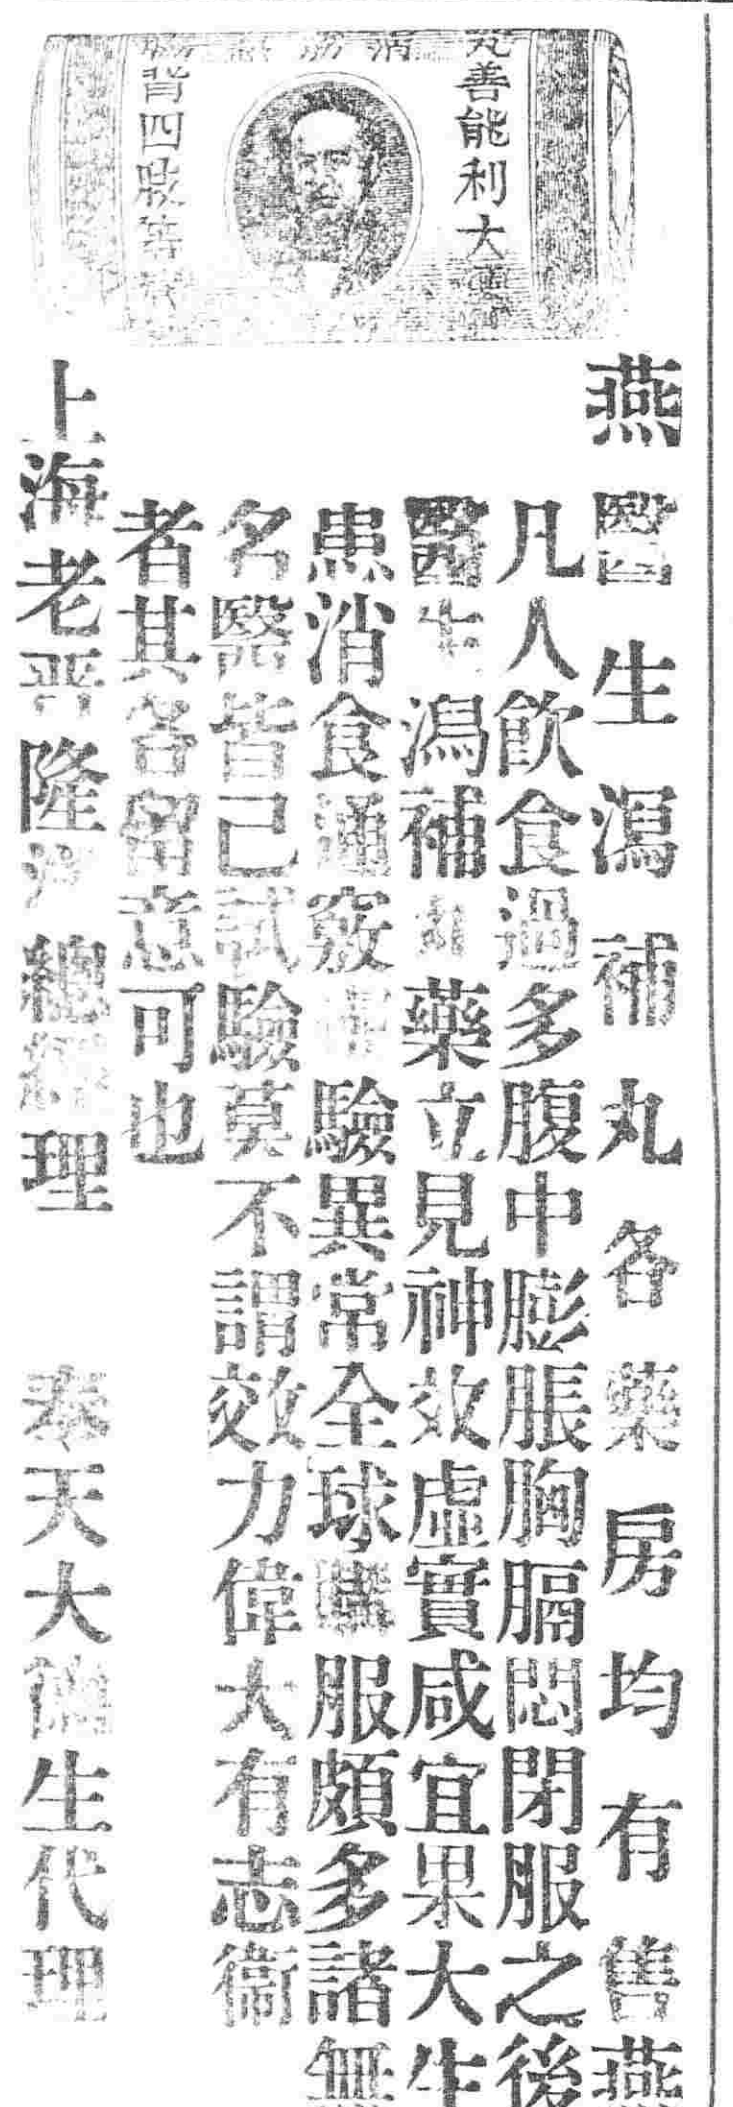 丸善能利大便
背四肢等
燕醫生瀉補丸各藥房均有售燕
凡人飲食過多腹中膨脹胸膈悶閉服之後
醫生瀉補丸藥立見神效虛實咸宜果大生
患消食通竅 驗異常全球購服頗多諸無
名醫皆已試驗莫不謂效力偉大有志衞
者其各留意可也
上海老晋隆洋總經理 奉天大衛生代理